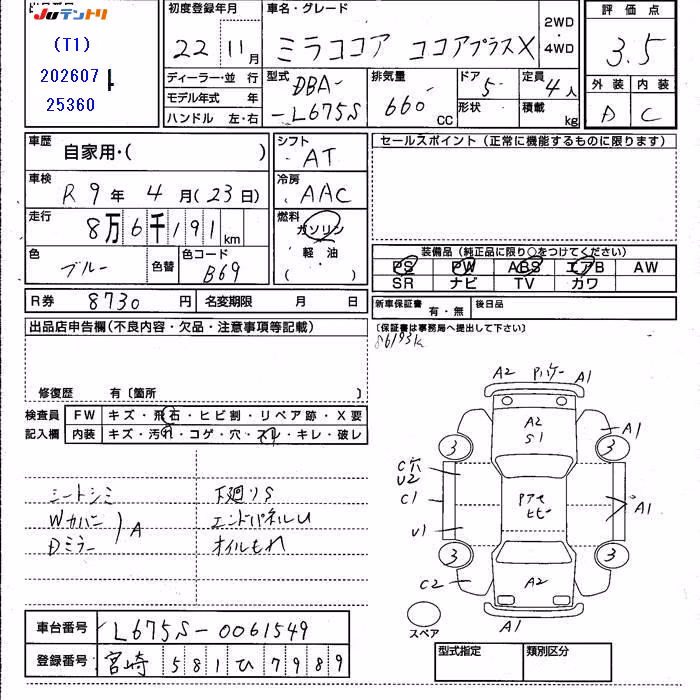 出品番号
JUテントリ
(T1)
202607
25360
初度登録年月
22年11月
車名・グレード
ミラココア ココアプラスX
2WD
・
4WD
評価点
3.5
ディーラー・並行
モデル年式 年
ハンドル 左・右
型式
DBA-
-L675S
排気量
660
CC
ドア
5
形状
定員
4人
積載
kg
外装 内装
D C
車歴
自家用・( )
シフト
AT
セールスポイント(正常に機能するものに限ります)
車検
R 9年 4月(23日)
冷房
AAC
走行
8万6千191km
燃料
ガソリン
軽油
( )
色
ブルー
色替
色コード
B69
装備品(純正品に限り○をつけてください)
PS PW ABS エアB AW
SR ナビ TV カワ
R券 8730円
名変期限 月 日
新車保証書 有・無
後日品
(保証書は事務局へ提出して下さい)
86193k
出品店申告欄(不良内容・欠品・注意事項等記載)
修復歴 有〔箇所 〕
検査員
記入欄
FW キズ・飛石・ヒビ割・リペア跡・X要
内装 キズ・汚れ・コゲ・穴・スレ・キレ・破レ
シートシミ
Wカバー
Dミラー
A
下廻りS
エンドパネルU
オイルもれ
A2
A1
A2
S1
A1
3
3
C穴
U2
C1
U1
A1
3
3
C2
A2
A1
スペア
車台番号 L675S-0061549
登録番号 宮崎 581ひ7989
型式指定
類別区分